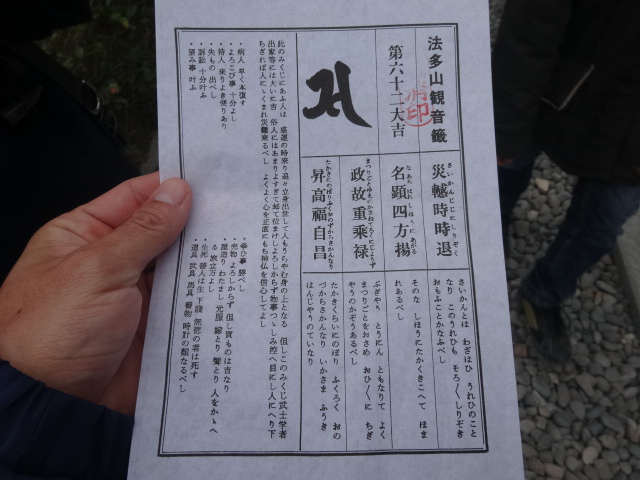 法多山観音籤
第六十二大吉
災轗時時退
さいかんじじにしりぞく
名顕四方揚
なあらはれしほうにあがる
政故重乗禄
まつりごとゆえにかさねてろくにじょうず
昇高福自昌
たかきにのぼりふくおのずからさかんなり
さいかんとは わざはひ うれひのこと
なり このうれひも そろ〱しりぞき
おもふことかなふべし
そのな しほうにたかくきこへて ほま
れあるべし
ぶぎやう とうにん ともなりて よく
まつりごとをおさめ おひ〱に ちぎ
やうのかぞうあるべし
たかきくらいにのぼり ふくろく おの
づからさかんなり いかさま ふうき
はんじやうのていなり
此のみくじにあふ人は 盛運の時来り追々立身出世して人もうらやむ身の上となる 但しこのみくじ武士学者
出家等には大いに吉 俗人にはあまりよすぎて却て位まけしよろしからず物事つゝしみ控へ目にし人にへり下
ちざれば人に〱くまれ災難来るべし よくよく心を正直にもち神仏を信心してよし
・病人 早く本復す
・よろこび事 十分よし
・待人 来りよき便りあり
・失もの 出べし
・訴訟 十分叶ふ
・望み事 叶ふ
・争ひ事 勝べし
・売物 よろしからず 但し買ものは吉なり
・屋造り わたまし 元服 嫁とり 聟とり 人をかゝへ
る 旅立万よし
・生死 善人は生 下賤 無徳の者は死す
・道具 武具 馬具 書物 時計の類なるべし